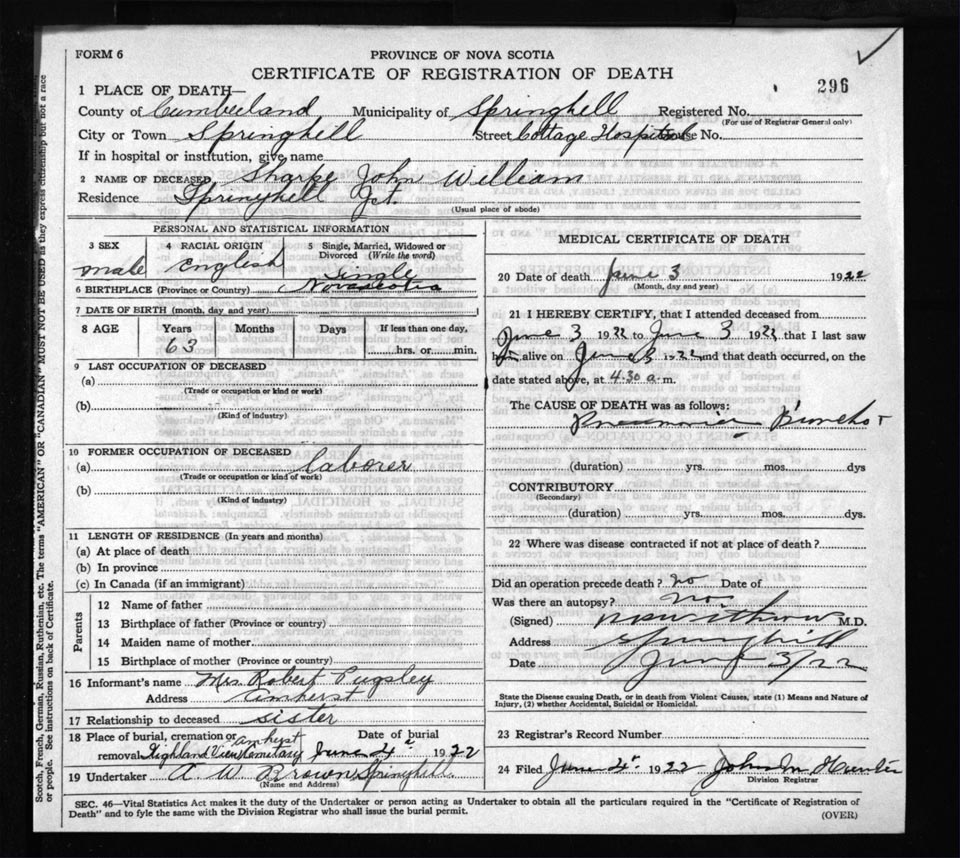 FORM 6
PROVINCE OF NOVA SCOTIA
CERTIFICATE OF REGISTRATION OF DEATH
296
1 PLACE OF DEATH—
County of Cumberland Municipality of Springhill Registered No.
(For use of Registrar General only)
City or Town Springhill Street Cottage Hospital House No.
If in hospital or institution, give name
2 NAME OF DECEASED Sharpe John William
Residence Springhill Jct.
(Usual place of abode)
PERSONAL AND STATISTICAL INFORMATION
3 SEX 4 RACIAL ORIGIN 5 Single, Married, Widowed or Divorced (Write the word)
male English Single
6 BIRTHPLACE (Province or Country) Nova Scotia
7 DATE OF BIRTH (month, day and year)
8 AGE Years Months Days If less than one day,
63 hrs. or min.
9 LAST OCCUPATION OF DECEASED
(a)
(Trade or occupation or kind of work)
(b)
(Kind of industry)
10 FORMER OCCUPATION OF DECEASED
(a) laborer
(Trade or occupation or kind of work)
(b)
(Kind of industry)
11 LENGTH OF RESIDENCE (In years and months)
(a) At place of death
(b) In province
(c) In Canada (if an immigrant)
Parents
12 Name of father
13 Birthplace of father (Province or country)
14 Maiden name of mother
15 Birthplace of mother (Province or country)
16 Informant's name Mrs. Robert Pugsley
Address Amherst
17 Relationship to deceased sister
18 Place of burial, cremation or Date of burial
removal Highland View Cemetary Amherst June 4 1922
19 Undertaker A W Brown Springhill
(Name and Address)
MEDICAL CERTIFICATE OF DEATH
20 Date of death June 3 1922
(Month, day and year)
21 I HEREBY CERTIFY, that I attended deceased from
June 3 1922 to June 3 1922 that I last saw
him alive on June 3 1922 and that death occurred, on the
date stated above, at 4.30 a. m.
The CAUSE OF DEATH was as follows:
Pneumonia Broncho
(duration) yrs. mos. dys
CONTRIBUTORY
(Secondary)
(duration) yrs. mos. dys.
22 Where was disease contracted if not at place of death?
Did an operation precede death? no Date of
Was there an autopsy? no
(Signed) Withrow M.D.
Address Springhill
Date June 3/22
State the Disease causing Death, or in death from Violent Causes, state (1) Means and Nature of
Injury, (2) whether Accidental, Suicidal or Homicidal.
23 Registrar's Record Number
24 Filed June 4 1922 John M Hunter
Division Registrar
SEC. 46—Vital Statistics Act makes it the duty of the Undertaker or person acting as Undertaker to obtain all the particulars required in the "Certificate of Registration of
Death" and to fyle the same with the Division Registrar who shall issue the burial permit.
(OVER)
Scotch, French, German, Russian, Ruthenian, etc. The terms "AMERICAN" OR "CANADIAN" MUST NOT BE USED as they express citizenship but not a race
or people. See instructions on back of Certificate.